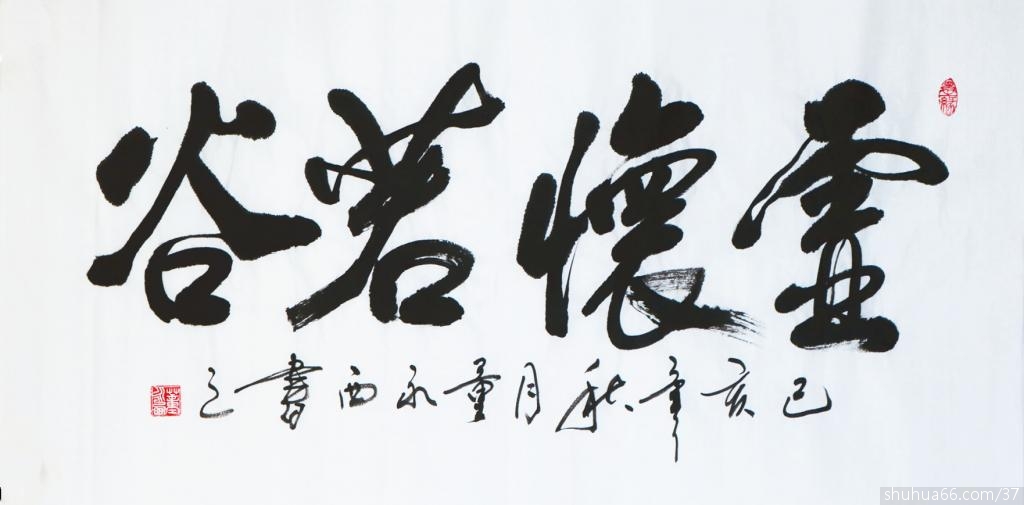 虛懷若谷
己亥年秋月董永西書之
shuhua66.com/37